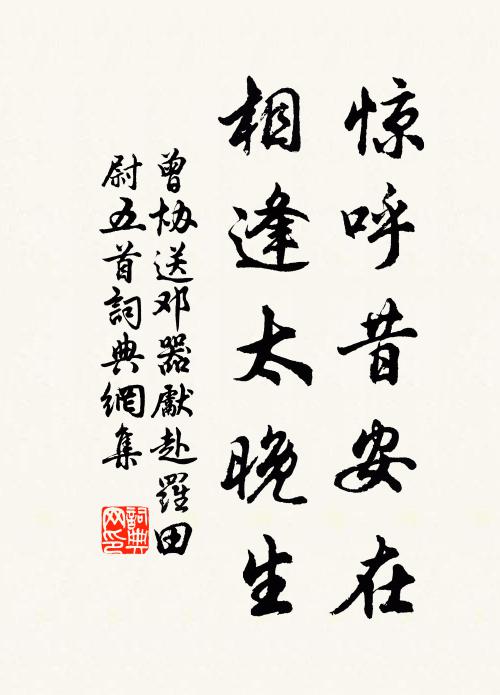 惊呼昔安在
相逢太晚生
曾协送邓器獻赴羅田
尉五首詞典網集
詞典网印